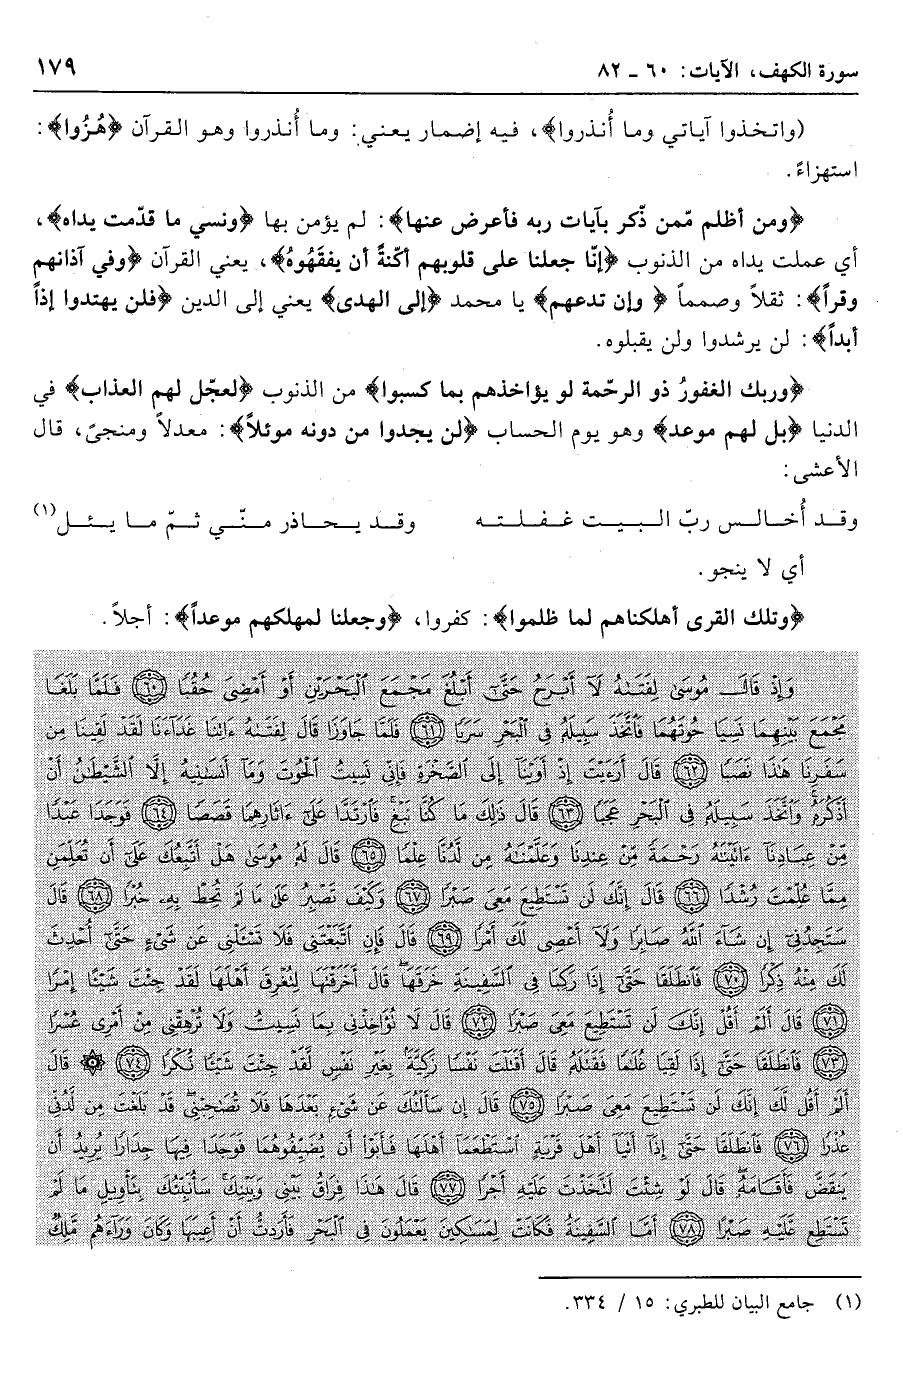 سورة الكهف، الآيات: ٦٠ ـ ٨٢ ١٧٩
(واتخذوا آياتي وما أُنذروا﴾، فيه إضمار يعني: وما أُنذروا وهو القرآن ﴿هُزُوا﴾:
استهزاءً.
﴿ومن أظلم مّمن ذّكر بآيات ربه فأعرض عنها﴾: لم يؤمن بها ﴿ونسي ما قدّمت يداه﴾،
أي عملت يداه من الذنوب ﴿إنّا جعلنا على قلوبهم أكنّةً أن يفقَهُوهُ﴾، يعني القرآن ﴿وفي آذانهم
وقراً﴾: ثقلاً وصمماً ﴿ وإن تدعهم﴾ يا محمد ﴿إلى الهدى﴾ يعني إلى الدين ﴿فلن يهتدوا إذاً
أبداً﴾: لن يرشدوا ولن يقبلوه.
﴿وربك الغفورُ ذو الرحّمة لو يؤاخذهم بما كسبوا﴾ من الذنوب ﴿لعجّل لهم العذاب﴾ في
الدنيا ﴿بل لهم موعد﴾ وهو يوم الحساب ﴿لن يجدوا من دونه موئلاً﴾: معدلاً ومنجىً، قال
الأعشى:
وقد أُخالس ربّ البيت غفلته وقد يحاذر منّي ثمّ ما يئل(١)
أي لا ينجو.
﴿وتلك القرى أهلكناهم لما ظلموا﴾: كفروا، ﴿وجعلنا لمهلكهم موعداً﴾: أجلاً.
وَإِذْ قَالَ مُوسَىٰ لِفَتَىٰهُ لَآ أَبْرَحُ حَتَّىٰٓ أَبْلُغَ مَجْمَعَ ٱلْبَحْرَيْنِ أَوْ أَمْضِىَ حُقُبًا ﴿٦٠﴾ فَلَمَّا بَلَغَا
مَجْمَعَ بَيْنِهِمَا نَسِيَا حُوتَهُمَا فَٱتَّخَذَ سَبِيلَهُۥ فِى ٱلْبَحْرِ سَرَبًا ﴿٦١﴾ فَلَمَّا جَاوَزَا قَالَ لِفَتَىٰهُ ءَاتِنَا غَدَآءَنَا لَقَدْ لَقِينَا مِن
سَفَرِنَا هَٰذَا نَصَبًا ﴿٦٢﴾ قَالَ أَرَءَيْتَ إِذْ أَوَيْنَآ إِلَى ٱلصَّخْرَةِ فَإِنِّى نَسِيتُ ٱلْحُوتَ وَمَآ أَنسَىٰنِيهُ إِلَّا ٱلشَّيْطَٰنُ أَنْ
أَذْكُرَهُۥ وَٱتَّخَذَ سَبِيلَهُۥ فِى ٱلْبَحْرِ عَجَبًا ﴿٦٣﴾ قَالَ ذَٰلِكَ مَا كُنَّا نَبْغِ فَٱرْتَدَّا عَلَىٰٓ ءَاثَارِهِمَا قَصَصًا ﴿٦٤﴾ فَوَجَدَا عَبْدًا
مِّنْ عِبَادِنَآ ءَاتَيْنَٰهُ رَحْمَةً مِّنْ عِندِنَا وَعَلَّمْنَٰهُ مِن لَّدُنَّا عِلْمًا ﴿٦٥﴾ قَالَ لَهُۥ مُوسَىٰ هَلْ أَتَّبِعُكَ عَلَىٰٓ أَن تُعَلِّمَنِ
مِمَّا عُلِّمْتَ رُشْدًا ﴿٦٦﴾ قَالَ إِنَّكَ لَن تَسْتَطِيعَ مَعِىَ صَبْرًا ﴿٦٧﴾ وَكَيْفَ تَصْبِرُ عَلَىٰ مَا لَمْ تُحِطْ بِهِۦ خُبْرًا ﴿٦٨﴾ قَالَ
سَتَجِدُنِىٓ إِن شَآءَ ٱللَّهُ صَابِرًا وَلَآ أَعْصِى لَكَ أَمْرًا ﴿٦٩﴾ قَالَ فَإِنِ ٱتَّبَعْتَنِى فَلَا تَسْـَٔلْنِى عَن شَىْءٍ حَتَّىٰٓ أُحْدِثَ
لَكَ مِنْهُ ذِكْرًا ﴿٧٠﴾ فَٱنطَلَقَا حَتَّىٰٓ إِذَا رَكِبَا فِى ٱلسَّفِينَةِ خَرَقَهَا قَالَ أَخَرَقْتَهَا لِتُغْرِقَ أَهْلَهَا لَقَدْ جِئْتَ شَيْـًٔا إِمْرًا
﴿٧١﴾ قَالَ أَلَمْ أَقُلْ إِنَّكَ لَن تَسْتَطِيعَ مَعِىَ صَبْرًا ﴿٧٢﴾ قَالَ لَا تُؤَاخِذْنِى بِمَا نَسِيتُ وَلَا تُرْهِقْنِى مِنْ أَمْرِى عُسْرًا
﴿٧٣﴾ فَٱنطَلَقَا حَتَّىٰٓ إِذَا لَقِيَا غُلَٰمًا فَقَتَلَهُۥ قَالَ أَقَتَلْتَ نَفْسًا زَكِيَّةًۢ بِغَيْرِ نَفْسٍ لَّقَدْ جِئْتَ شَيْـًٔا نُّكْرًا ﴿٧٤﴾ ۞ قَالَ
أَلَمْ أَقُل لَّكَ إِنَّكَ لَن تَسْتَطِيعَ مَعِىَ صَبْرًا ﴿٧٥﴾ قَالَ إِن سَأَلْتُكَ عَن شَىْءٍۭ بَعْدَهَا فَلَا تُصَٰحِبْنِى قَدْ بَلَغْتَ مِن لَّدُنِّى
عُذْرًا ﴿٧٦﴾ فَٱنطَلَقَا حَتَّىٰٓ إِذَآ أَتَيَآ أَهْلَ قَرْيَةٍ ٱسْتَطْعَمَآ أَهْلَهَا فَأَبَوْا۟ أَن يُضَيِّفُوهُمَا فَوَجَدَا فِيهَا جِدَارًا يُرِيدُ أَن
يَنقَضَّ فَأَقَامَهُۥ قَالَ لَوْ شِئْتَ لَتَّخَذْتَ عَلَيْهِ أَجْرًا ﴿٧٧﴾ قَالَ هَٰذَا فِرَاقُ بَيْنِى وَبَيْنِكَ سَأُنَبِّئُكَ بِتَأْوِيلِ مَا لَمْ
تَسْتَطِع عَّلَيْهِ صَبْرًا ﴿٧٨﴾ أَمَّا ٱلسَّفِينَةُ فَكَانَتْ لِمَسَٰكِينَ يَعْمَلُونَ فِى ٱلْبَحْرِ فَأَرَدتُّ أَنْ أَعِيبَهَا وَكَانَ وَرَآءَهُم مَّلِكٌ
(١) جامع البيان للطبري: ١٥ / ٣٣٤.